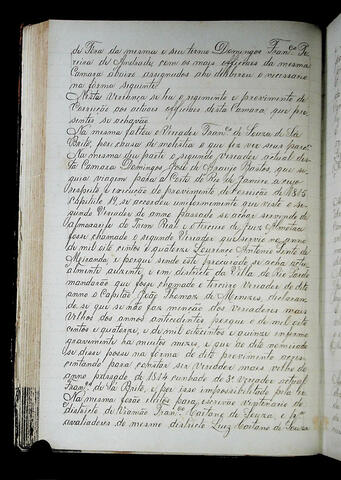 de Fóra da mesma e seu termo Domingos Franco Pe-
reira de Andrade, com os mais officiaes da mesma
Camara abaixo assignados ahi deliberou o necessario
na forma seguinte
Nesta Veriança se leu o regimento e provimento de
Correição aos actuaes officiaes desta Camara que pre-
sentes se achavão.
Na mesma faltou o Vereador Franco de Souza de Sá
Brito, por causa de molestia o que fez ver aos pares
Na mesma deu parte o segundo vereador actual des-
ta Camara Domingos José de Araujo Bastos, que se-
guia viagem para a Corte do Rio de Janeiro, a cujo
respeito e execução do provimento de Correição de 1805
Capitulo 19, se accordou uniformemente visto o se-
gundo Vereador do anno passado se achar servindo de
Almoxarife do Trem Real e o terceiro de Juiz Almotacé
fosse chamado o segundo Vereador que servio no anno
de mil oito centos e quatorze Laurenço Antonio Pinto de
Meirandas, e porque sendo este procurado, se acha actu-
almente auzente, e em districto da Villa do Rio Pardo
mandarão que fosse chamado o terceiro Vereador do dito
anno o Capitão João Thomaz de Menezes, declaran-
do-se que se não faz menção dos vereadores mais
velhos dos annos antecedentes porque o de mil oito
centos e quatorze, e de mil oitocentos e quinze infermo
gravemente ha muitos mezes, e que ao dito nomeiado
se désse posse na forma do dito provimento acres-
centando para constar ser Vereador mais velho do
anno passado de 1814 cunhado do 3º vereador actual
Franco de Sá Brito, e por isso impossibilitado pela lei
Na mesma forão eleitos para escrivão ventenario do
districto de Viamão Franco Caetano de Souza, e pª
avaliadores do mesmo districto Luiz Caetano de Souza